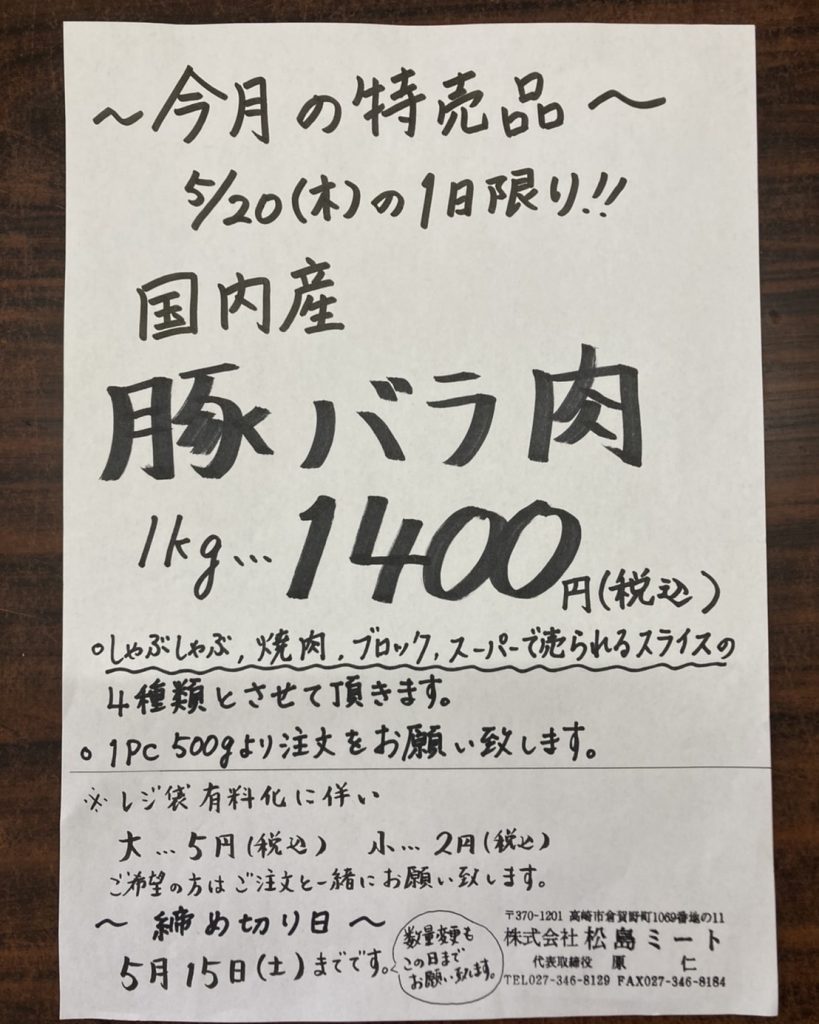 ～今月の特売品～
5/20(木)の1日限り!!
国内産
豚バラ肉
1kg…1400円(税込)
○しゃぶしゃぶ,焼肉,ブロック,スーパーで売られるスライスの
4種類とさせて頂きます。
○1PC 500gより注文をお願い致します。
※レジ袋有料化に伴い
大…5円(税込) 小…2円(税込)
ご希望の方はご注文と一緒にお願い致します。
～締め切り日～
5月15日(土)までです。
数量変更も
この日まで
お願い致します。
〒370-1201 高崎市倉賀野町1069番地の11
株式会社 松島ミート
代表取締役 原 仁
TEL027-346-8129 FAX027-346-8184